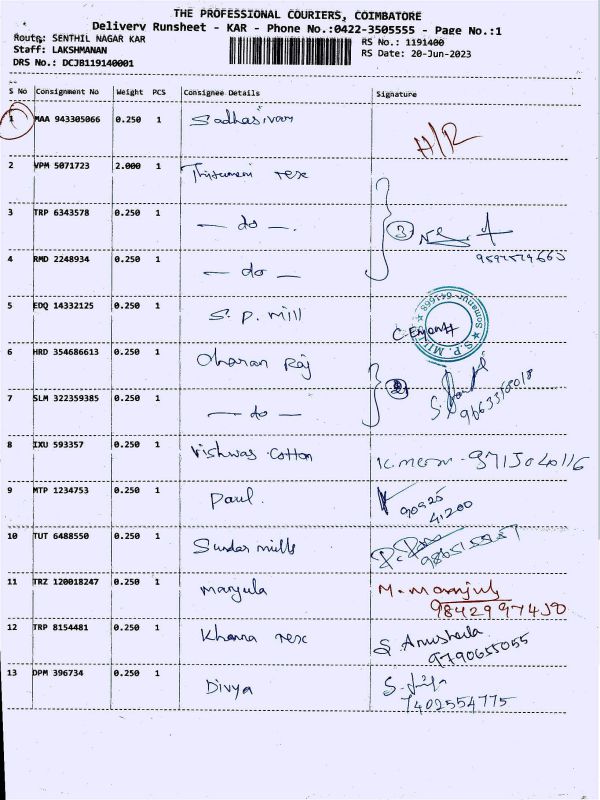 THE PROFESSIONAL COURIERS, COIMBATORE
Delivery Runsheet - KAR - Phone No.:0422-3505555 - Page No.:1
Route: SENTHIL NAGAR KAR RS No.: 1191400
Staff: LAKSHMANAN RS Date: 20-Jun-2023
DRS No.: DCJB119140001
S No Consignment No Weight PCS Consignee Details Signature
1 MAA 943305066 0.250 1 Sadhasivam H/R
2 VPM 5071723 2.000 1 Tex
3 TRP 6343578 0.250 1 — do —. 3
4 RMD 2248934 0.250 1 — do —
5 EDQ 14332125 0.250 1 S. P. mill
S.P. MILL ★ Somanur-641668 ★
6 HRD 354686613 0.250 1 Dharan Raj 2
7 SLM 322359385 0.250 1 — do —
8 IXU 593357 0.250 1 Vishwas Cotton
9 MTP 1234753 0.250 1 Paul. 90925
41200
10 TUT 6488550 0.250 1 Sundar mills
11 TRZ 120018247 0.250 1 manjula M. manjula
12 TRP 8154481 0.250 1 Khanna Tex
9790655055
13 DPM 396734 0.250 1 Divya
7402554775